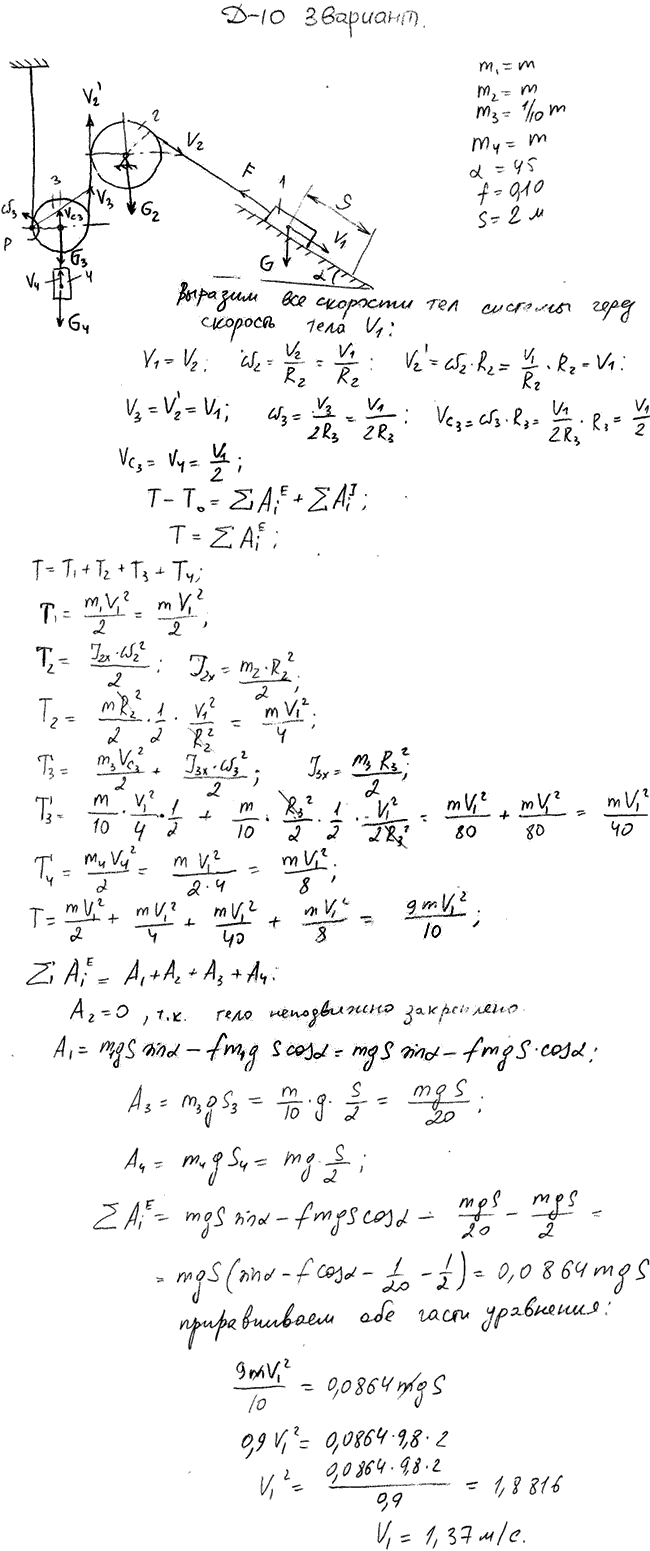 Д-10 3 Вариант.
m₁ = m
m₂ = m
m₃ = 1/10 m
m₄ = m
α = 45
f = 0,10
S = 2 м
V₂'
2
V₂
3
ω₃
V₃
V_C3
P
G₂
G₃
V₄
4
G₄
F
1
S
V₁
G
α
Выразим все скорости тел системы через
скорость тела V₁:
V₁ = V₂; ω₂ = V₂/R₂ = V₁/R₂: V₂' = ω₂·R₂ = V₁/R₂ · R₂ = V₁:
V₃ = V₂' = V₁; ω₃ = V₃/2R₃ = V₁/2R₃: V_C3 = ω₃·R₃ = V₁/2R₃ · R₃ = V₁/2
V_C3 = V₄ = V₁/2;
T − T₀ = ∑Aᵢᴱ + ∑Aᵢᴶ;
T = ∑Aᵢᴱ;
T = T₁ + T₂ + T₃ + T₄;
T₁ = m₁V₁²/2 = mV₁²/2;
T₂ = J₂ₓ·ω₂²/2; J₂ₓ = m₂·R₂²/2;
T₂ = mR₂²/2 · 1/2 · V₁²/R₂² = mV₁²/4;
T₃ = m₃V_C3²/2 + J₃ₓ·ω₃²/2; J₃ₓ = m₃R₃²/2;
T₃ = m/10 · V₁²/4 · 1/2 + m/10 · R₃²/2 · 1/2 · V₁²/2R₃² = mV₁²/80 + mV₁²/80 = mV₁²/40
T₄ = m₄V₄²/2 = mV₁²/2·4 = mV₁²/8;
T = mV₁²/2 + mV₁²/4 + mV₁²/40 + mV₁²/8 = 9mV₁²/10;
∑Aᵢᴱ = A₁ + A₂ + A₃ + A₄:
A₂ = 0, т.к. тело неподвижно закреплено.
A₁ = m₁gS sinα − fm₁g S cosα = mgS sinα − fmgS·cosα;
A₃ = m₃gS₃ = m/10 · g · S/2 = mgS/20;
A₄ = m₄gS₄ = mg·S/2;
∑Aᵢᴱ = mgS sinα − fmgS cosα − mgS/20 − mgS/2 =
= mgS(sinα − f cosα − 1/20 − 1/2) = 0,0864 mgS
приравниваем обе части уравнения:
9mV₁²/10 = 0,0864 mgS
0,9V₁² = 0,0864·9,8·2
V₁² = 0,0864·9,8·2/0,9 = 1,8816
V₁ = 1,37 м/с.